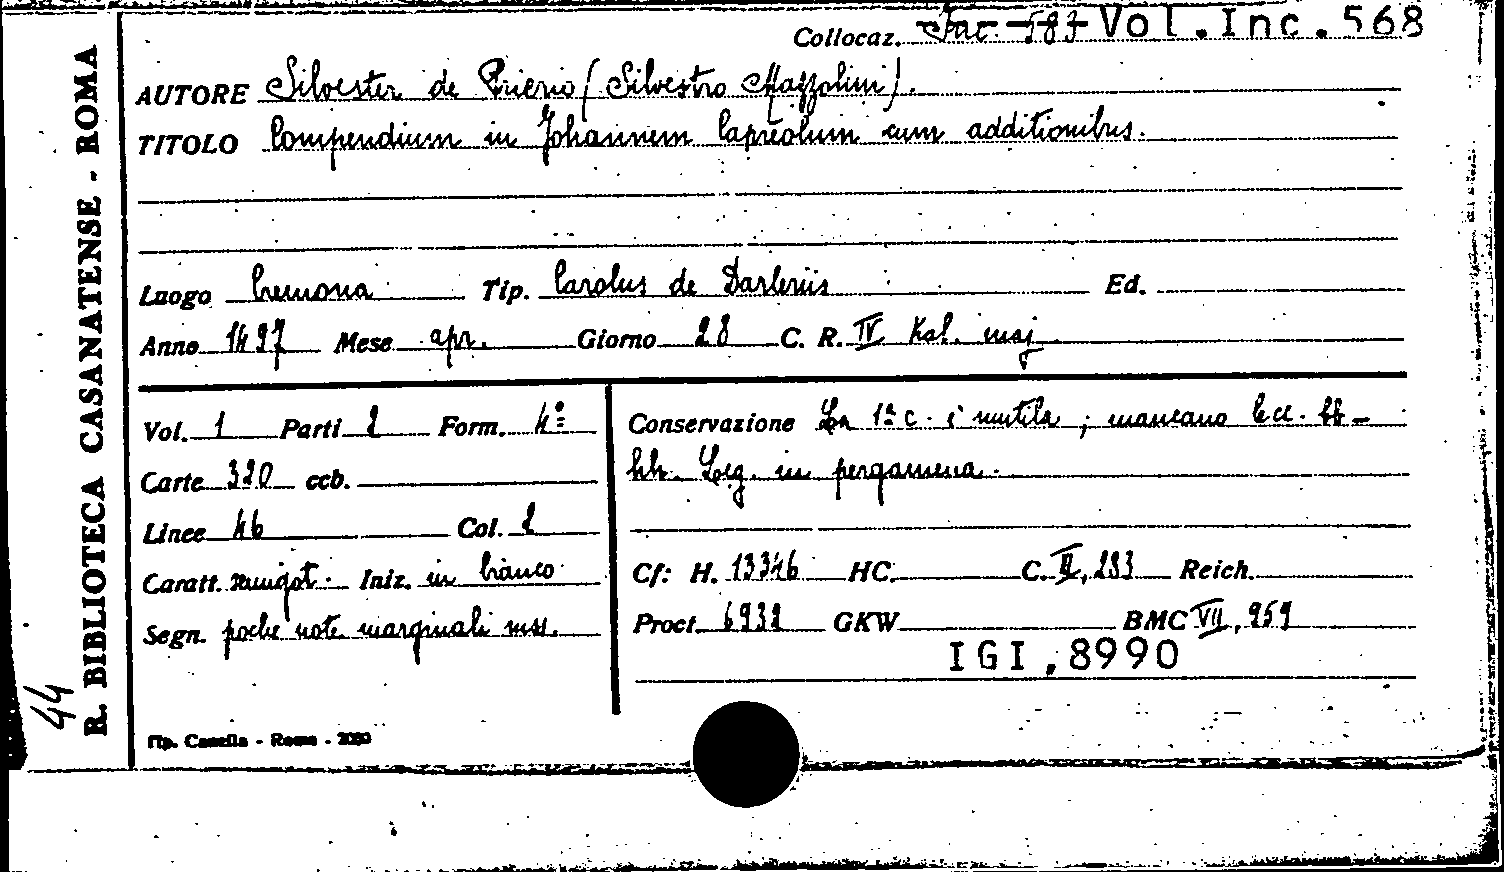 Collocaz. Fac. 583 Vol.Inc.568
AUTORE Silvester de Prierio (Silvestro Mazzolini).
TITOLO Compendium in Johannem Capreolum cum additionibus.
Luogo Cremona Tip. Carolus de Darleriis Ed.
Anno 1497 Mese apr. Giorno 28 C. R. IV Kal. maj
Vol. 1 Parti 2 Form. 4º
Carte 320 ccb.
Linee 46 Col. 2
Caratt. semigot. Iniz. in bianco
Segn. poche note marginali mss.
Conservazione La 1ª c. è mutila; mancano le cc. bb-
hh. Leg. in pergamena.
Cf: H. 13346 HC. C. II, 283 Reich.
Proct. 6932 GKW BMC VII, 959
IGI,8990
Tip. Casella - Roma - 2080
R. BIBLIOTECA CASANATENSE - ROMA
44